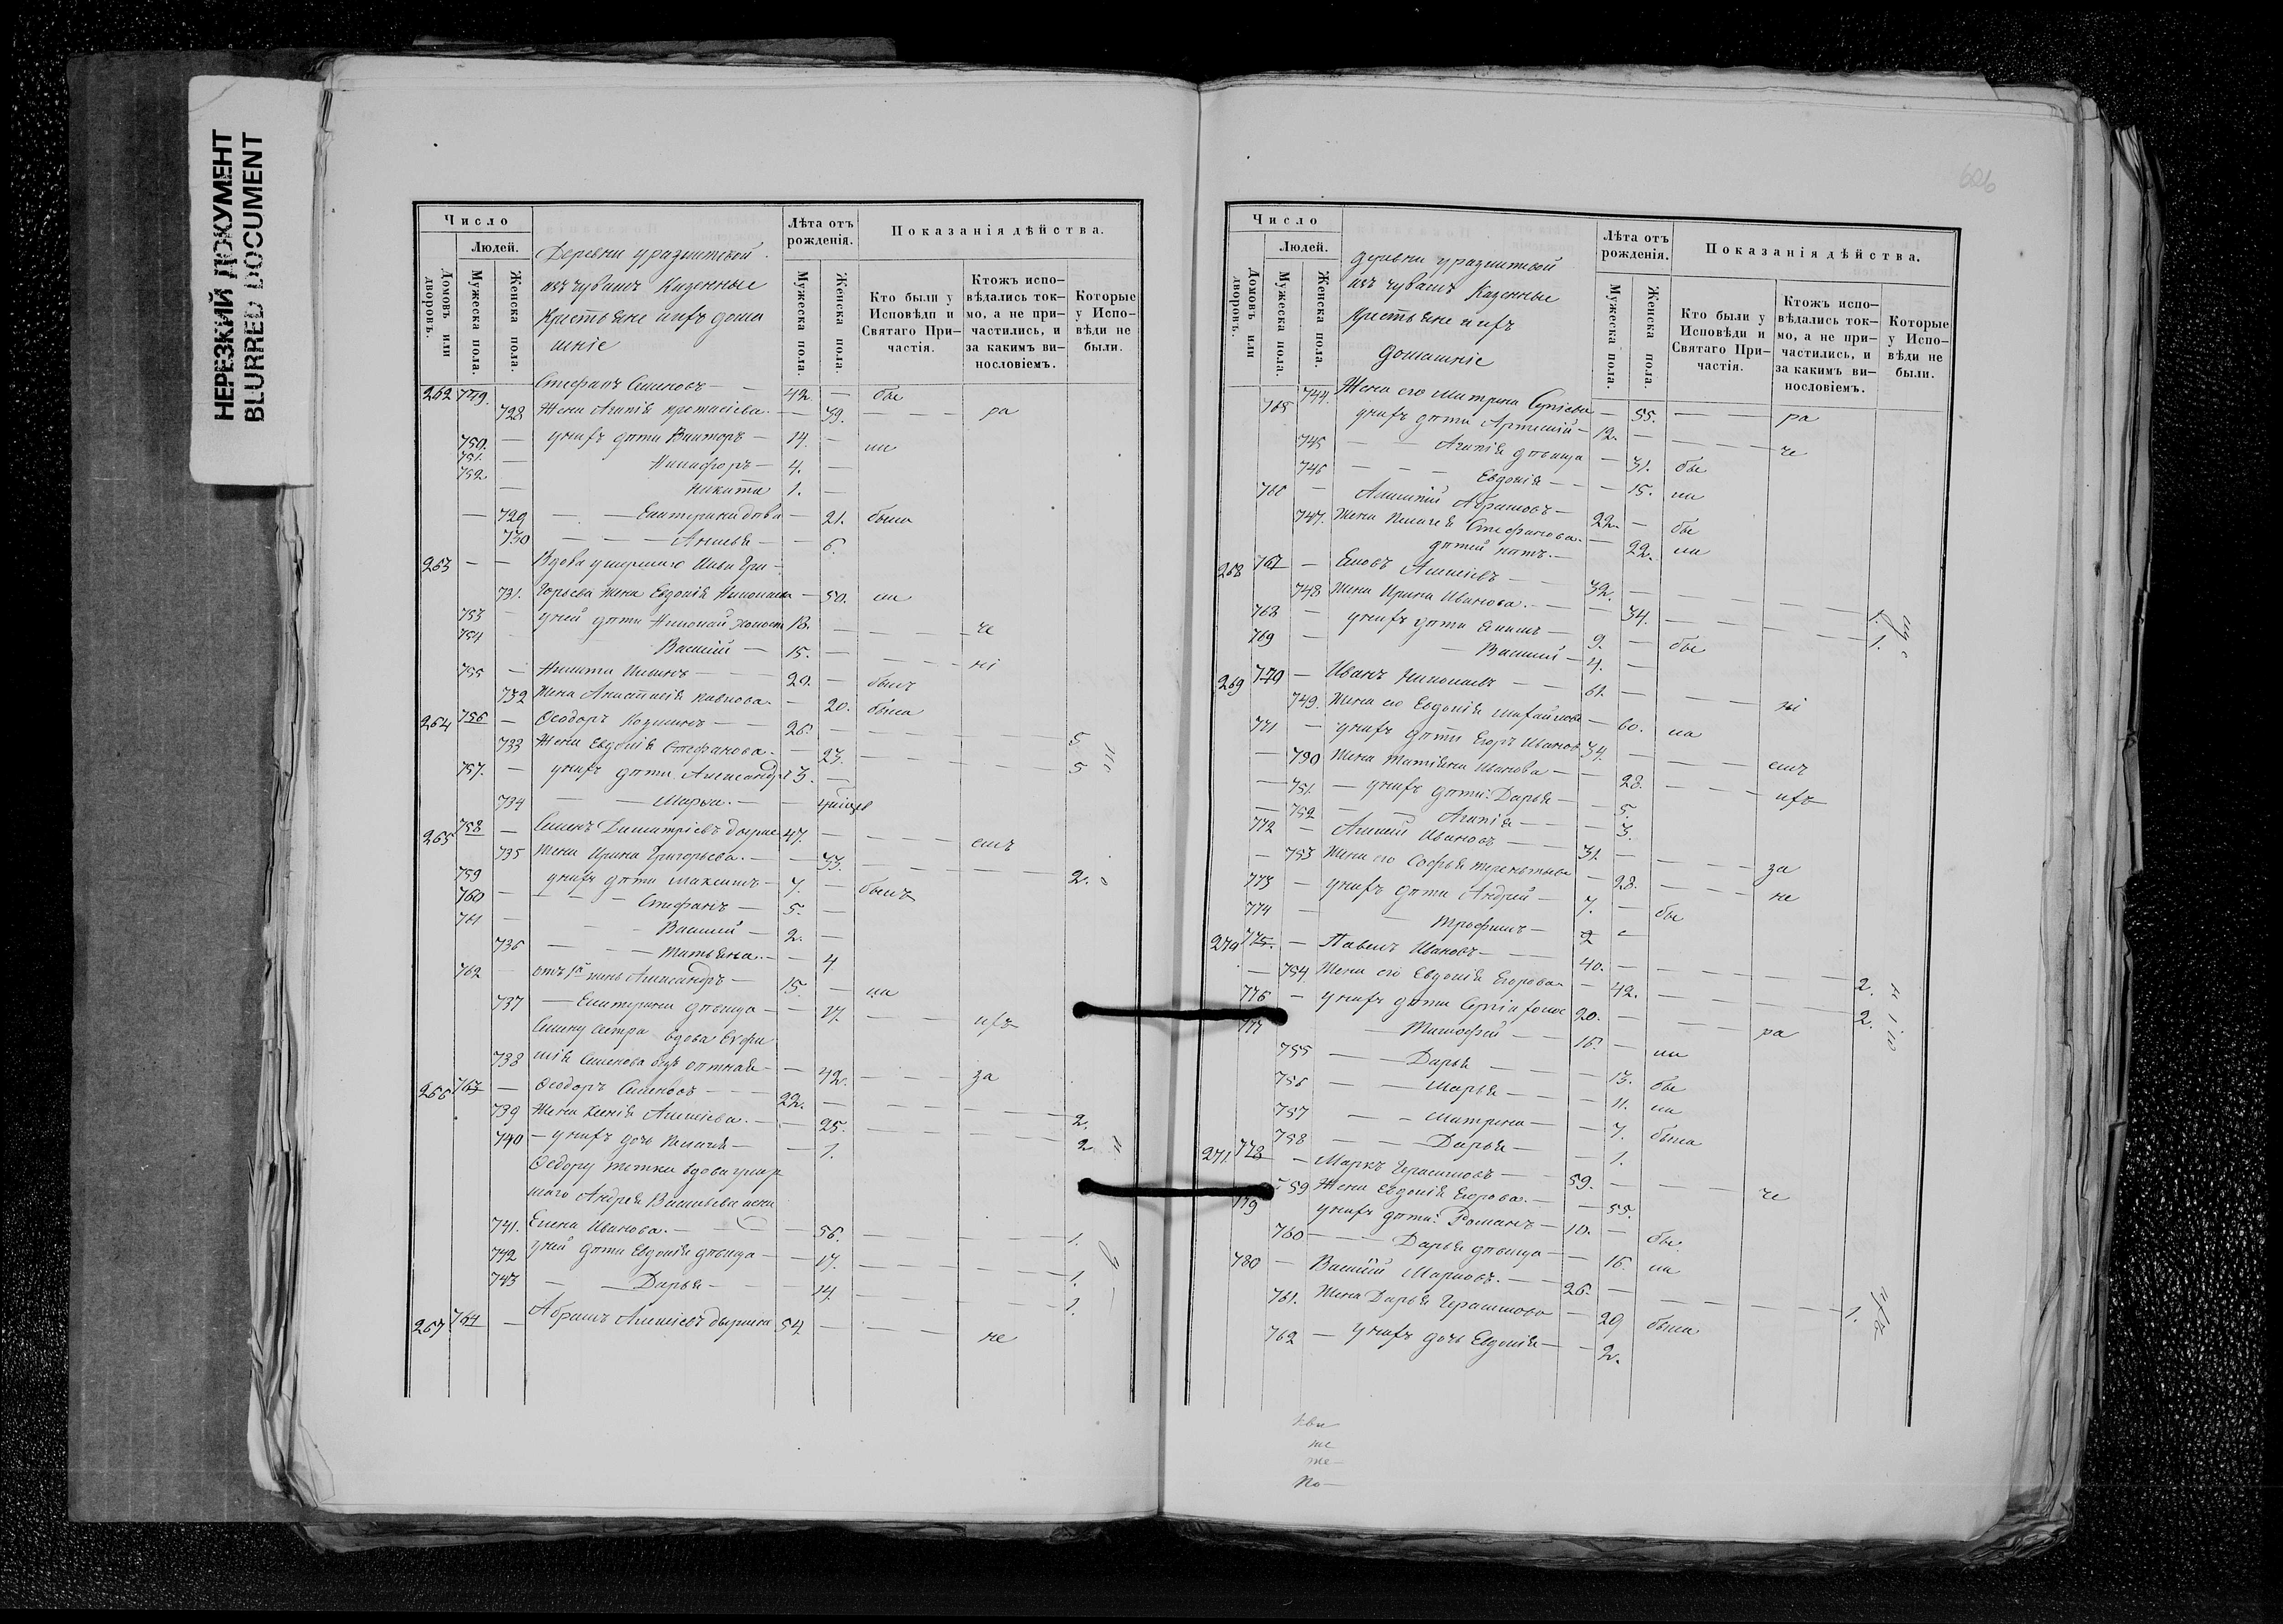 НЕРЕЗКИЙ ДОКУМЕНТ
BLURRED DOCUMENT
Число
Людей.
Домовъ или дворовъ.
Мужеска пола.
Женска пола.
Деревни
изъ чувашъ Казенные
Крестьяне и ихъ дома
шніе
Лѣта отъ рожденія.
Мужеска пола.
Женска пола.
Показанія дѣйства.
Кто были у Исповѣди и Святаго Причастія.
Ктожъ исповѣдались токмо, а не причастились, и за какимъ винословіемъ.
Которые у Исповѣди не были.
262 749. Стефанъ Семеновъ — 42 — бы
728 Жена Агапія — 39. — — ра
750. — у нихъ дѣти Викторъ — 14. — ли
751. — Никифоръ — 4. —
752 — Никита 1. —
— 729 — Екатерина — 21. была
730 — — — — 6.
263 — — Вдова умершаго
731. Жена Евдокія — 50. ли
753 — у ней дѣти Николай 18. — — че
754 — Василій — 15. — — — ні
755 — Никита — 20. — былъ
732 Жена Анастасія — 20. была
264 756 — Ѳеодоръ — 26. — — — 5
733 Жена Евдокія Стефанова. — 23. — — — 5
757. — у нихъ дѣти Александръ 3. —
734 — — Марья. —
265 758 — Семенъ Димитріевъ 47. — — — емъ
735 Жена Ирина Григорьева. — 33. — — — 2.
759 у нихъ дѣти Максимъ — 7. — былъ
760 — — — Стефанъ — 5. —
761 — Василій — 2. —
736 — — Татьяна. — — 4
762 — Александръ — 15. — ли
737 — Екатерина дѣвица — 17. — — ихъ
Семену сестра вдова
738 Семенова — 42. — — за
266 763 — Ѳеодоръ Семеновъ — 22. — — — 2.
739 Жена Ксенія Алексіева. — 25. — — — 2
740 — у нихъ дочь Пелагея — — 1.
Ѳедору тетка вдова умер
шаго Андрея Васильева жена
741. Елена Иванова. — — 56. — — — 1.
742 у ней дѣти Евдокія дѣвица — 17. — — — 1.
743 — — Дарья — — 14. — — — 1.
267 764 — Абрамъ Алексіевъ 54 — — — не
626
Число
Людей.
Домовъ или дворовъ.
Мужеска пола.
Женска пола.
изъ чувашъ Казенные
Крестьяне и ихъ
домашніе
Лѣта отъ рожденія.
Мужеска пола.
Женска пола.
Показанія дѣйства.
Кто были у Исповѣди и Святаго Причастія.
Ктожъ исповѣдались токмо, а не причастились, и за какимъ винословіемъ.
Которые у Исповѣди не были.
744. Жена его Матрена Сергіева — 55. — — ра
765 у нихъ дѣти Артемій — 12. — — — че
745 — — Агапія дѣвица — 31. бы
746 — — — Евдокія — — 15. ли
766 — Алексій Абрамовъ — 22. — бы
747. Жена Пелагея Стефанова. — 22. ли
дѣтей нѣтъ. —
268 767 — Алексіевъ — 32. — — — 1.
748 Жена Ирина Иванова. — — 34. — — — 1.
768 — у нихъ дѣти — 9. — бы
769 — — Василій — 4. —
269 770 — Иванъ Николаевъ — — 61. — — — ні
749. Жена его Евдокія Михайлова — 60. ли
771 — у нихъ дѣти Егоръ Ивановъ 34. — — — емъ
— 750 Жена Татіяна Иванова — — 28. — — ихъ
— 751. — у нихъ дѣти: Дарья — — 5.
— 752 — — Агапія — — 3.
772 — Алексій Ивановъ — 31. — — — за
— 753 Жена его Софья Терентьева — 28. — — не
773 — у нихъ дѣти Андрей — 7. — бы
774 — — Трофимъ — 2 —
270 775. — Павелъ Ивановъ — — 40. — — — 2.
— 754 Жена его Евдокія Егорова — 42. — — — 2.
776 — у нихъ дѣти Сергій 20. — — — ра
777 — Тимофей — — 16. — ли
755 — — Дарья — — 13. бы
756 — — Марья — — 11. ли
757 — — Матрена — — 7. была
758 — — Дарья — — 1.
271. 778 — Маркъ Герасимовъ — 59. — — — че
59 Жена Евдокія Егорова. — 55.
779 у нихъ дѣти: Романъ — 10. — бы
760 — — Дарья дѣвица — — 16. ли
780 — Василій Марковъ. — 26. — — — 1.
761. Жена Дарья Герасимова — 29 была
762 — у нихъ дочь Евдокія — — 2.
же
же
По